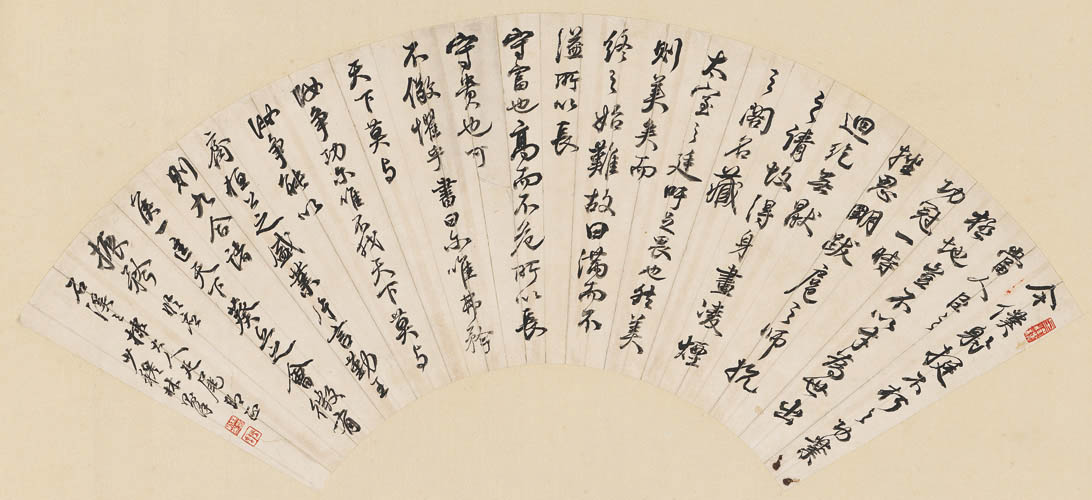 今僕射挺不朽之功業
當人臣之
極地豈不以才為世出
功冠一時
挫思明跋扈之師抗
迴紇無厭
之請故得身畫凌煙
之閣名藏
太室之廷吁足畏也然美
則美矣而
終之始難故曰滿而不
溢所以長
守富也高而不危所以長
守貴也可
不儆懼乎書曰爾唯弗矜
天下莫與
汝爭功爾唯不伐天下莫與
汝爭能以
齊桓公之盛業片言勤王
則九合諸
侯一匡天下葵丘之會微有
振矜